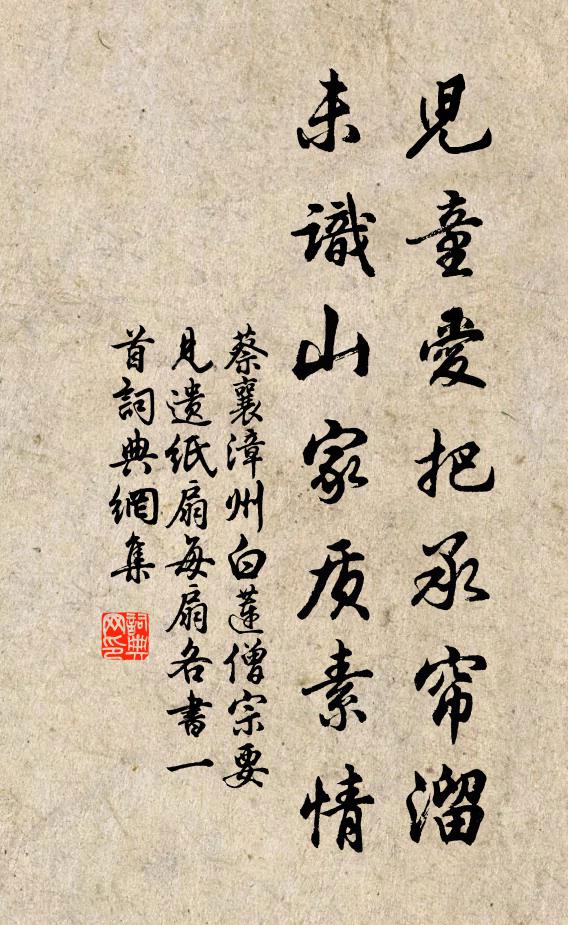 児童愛把承帘溜
未識山家质素情
蔡襄漳州白莲僧宗要
見遗纸扇每扇各書一
首詞典網集
詞典
网印